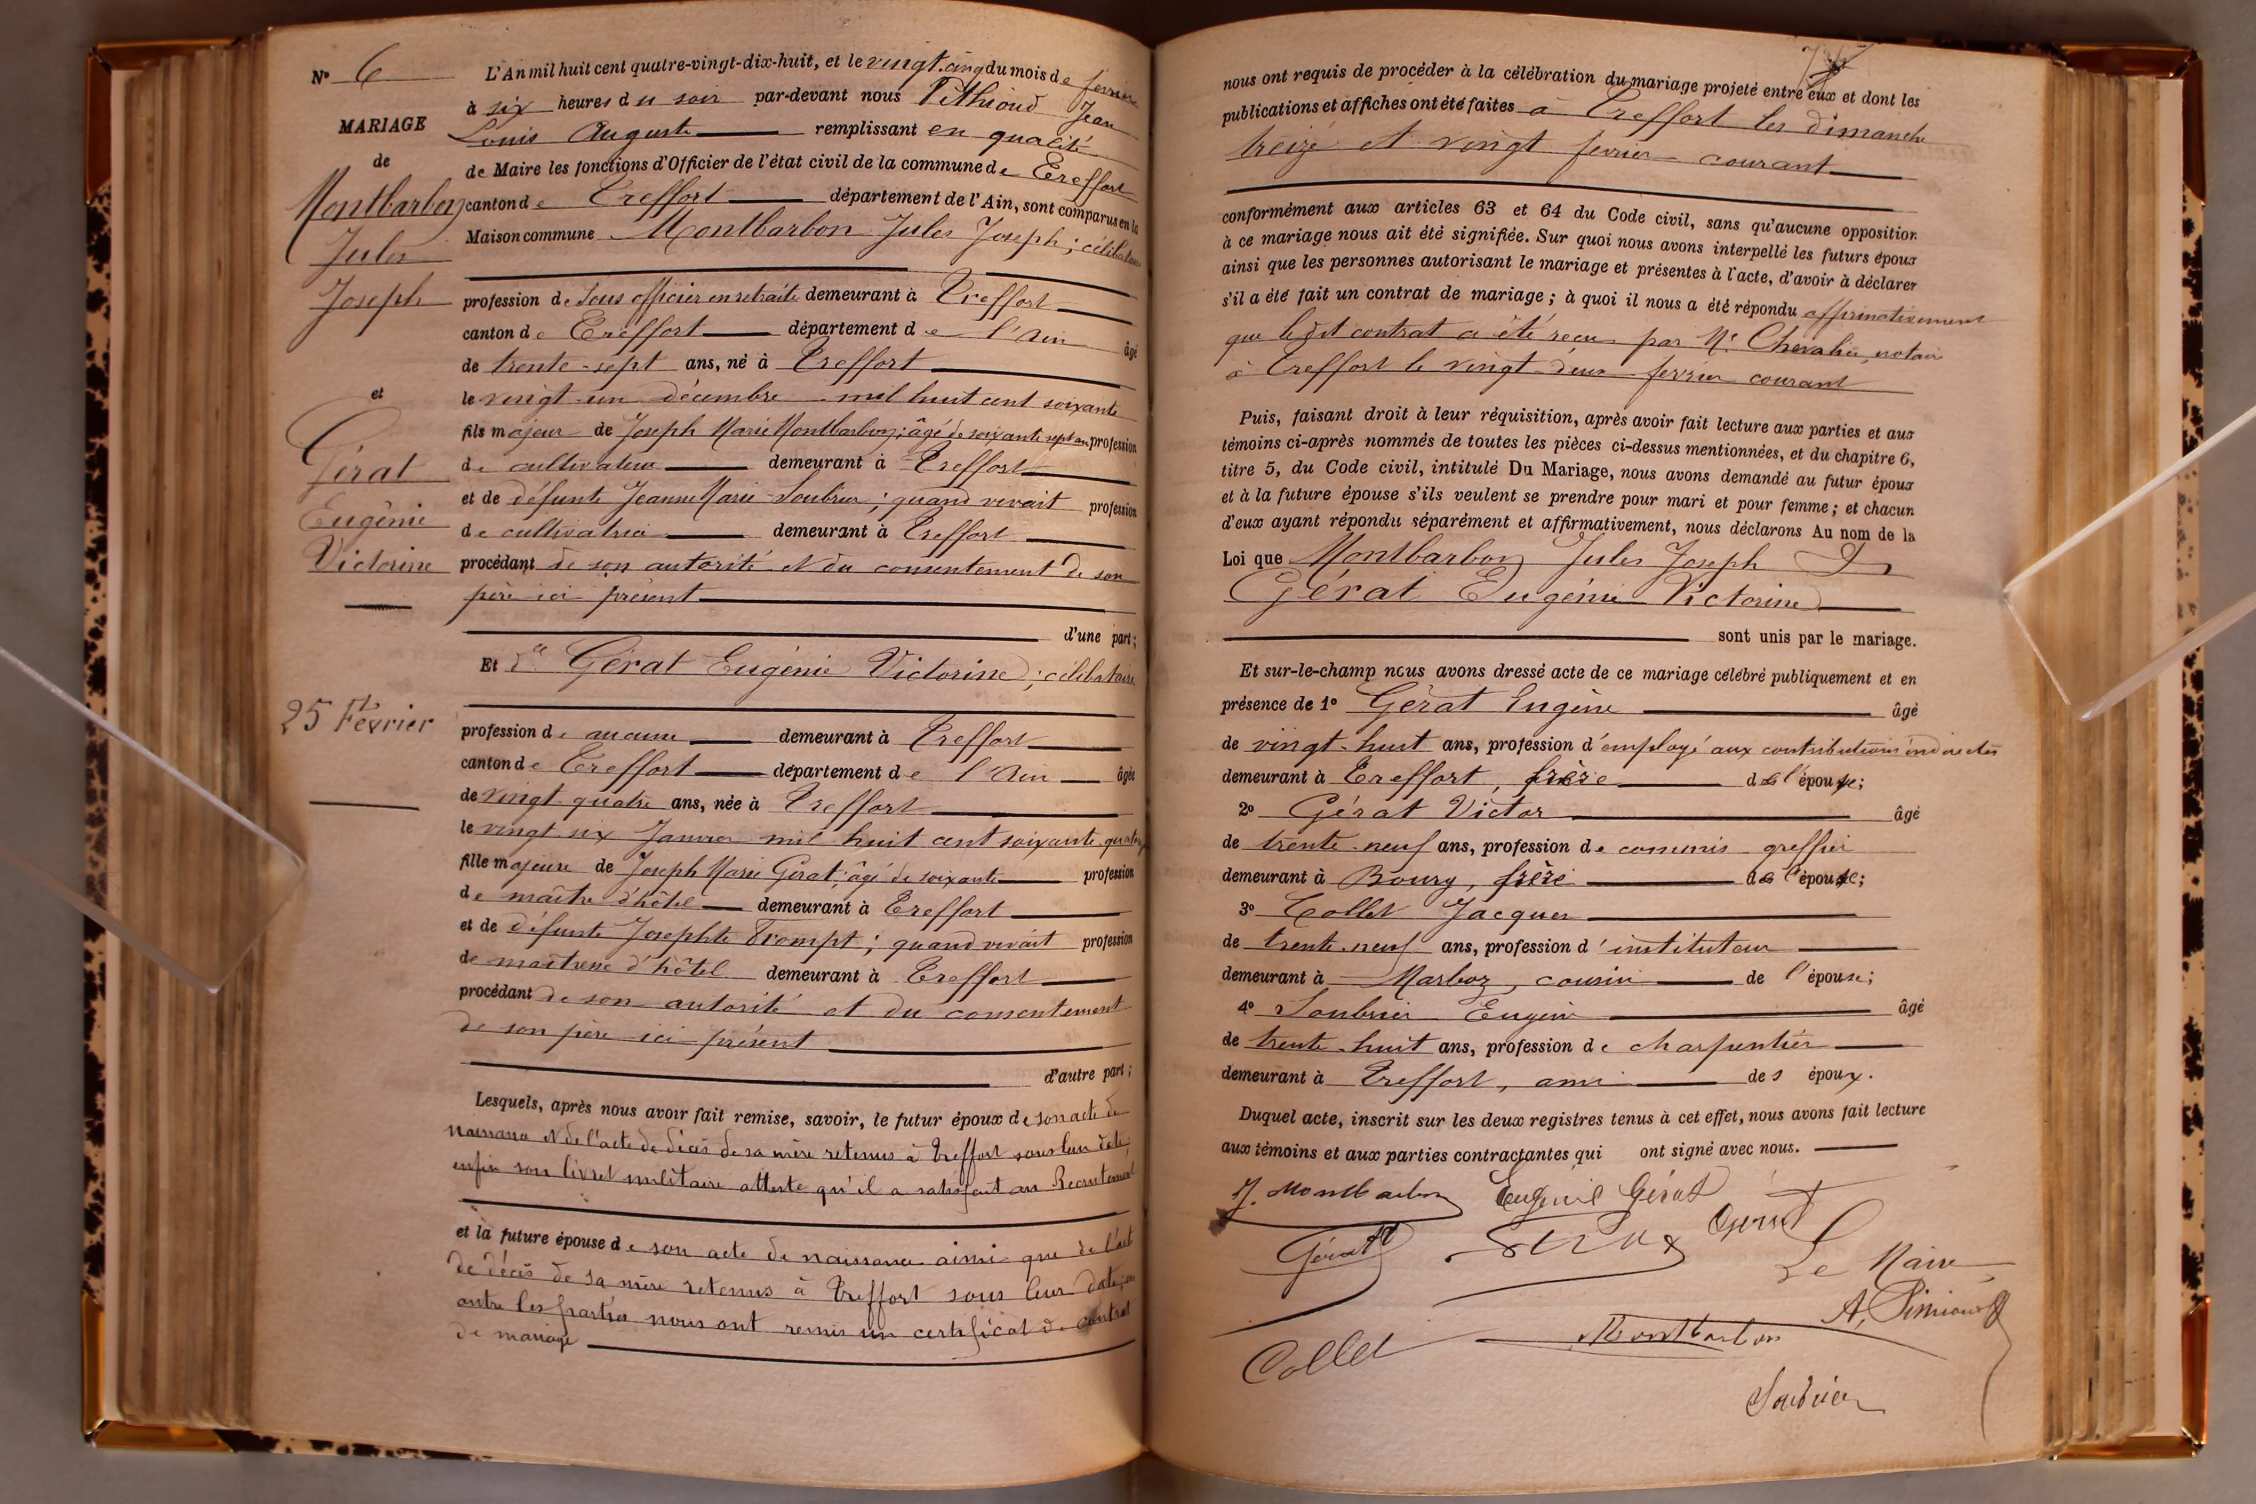 N° 6
MARIAGE
de
Montbarbon
Jules
Joseph
et
Gérat
Eugénie
Victorine
25 Février
L'An mil huit cent quatre-vingt-dix-huit, et le vingt-cinq du mois de février
à six heures du soir par-devant nous Jean
Louis Auguste remplissant en qualité
de Maire les fonctions d'Officier de l'état civil de la commune de Treffort
canton de Treffort département de l'Ain, sont comparus en la
Maison commune Montbarbon Jules Joseph ; célibataire
profession de Sous officier en retraite demeurant à Treffort
canton de Treffort département de l'Ain âgé
de trente-sept ans, né à Treffort
le vingt-un décembre mil huit cent soixante
fils majeur de Joseph Marie Montbarbon ; âgé de soixante sept ans profession
de cultivateur demeurant à Treffort
et de défunte Jeanne Marie Soubrier ; quand vivait profession
de cultivatrice demeurant à Treffort
procédant de son autorité et du consentement de son
père ici présent
d'une part ;
Et Dlle Gérat Eugénie Victorine ; célibataire
profession de aucune demeurant à Treffort
canton de Treffort département de l'Ain âgée
de vingt quatre ans, née à Treffort
le vingt six Janvier mil huit cent soixante quatorze
fille majeure de Joseph Marie Gérat ; âgé de soixante profession
de maître d'hôtel demeurant à Treffort
et de défunte Josephte Trompt ; quand vivait profession
de maîtresse d'hôtel demeurant à Treffort
procédant de son autorité et du consentement
de son père ici présent
d'autre part ;
Lesquels, après nous avoir fait remise, savoir, le futur époux de son acte de
naissance et de l'acte de décès de sa mère retenus à Treffort sous leur date ;
enfin son livret militaire atteste qu'il a satisfait au Recrutement
et la future épouse de son acte de naissance ainsi que de l'acte
de décès de sa mère retenus à Treffort sous leur date ; en
outre les parties nous ont remis un certificat de contrat
de mariage
nous ont requis de procéder à la célébration du mariage projeté entre eux et dont les
publications et affiches ont été faites à Treffort les dimanche
treize et vingt fevrier courant
conformément aux articles 63 et 64 du Code civil, sans qu'aucune opposition
à ce mariage nous ait été signifiée. Sur quoi nous avons interpellé les futurs époux
ainsi que les personnes autorisant le mariage et présentes à l'acte, d'avoir à déclarer
s'il a été fait un contrat de mariage ; à quoi il nous a été répondu affirmativement
que le dit contrat a été reçu par Me Chevalier, notaire
à Treffort le vingt-deux fevrier courant
Puis, faisant droit à leur réquisition, après avoir fait lecture aux parties et aux
témoins ci-après nommés de toutes les pièces ci-dessus mentionnées, et du chapitre 6,
titre 5, du Code civil, intitulé Du Mariage, nous avons demandé au futur époux
et à la future épouse s'ils veulent se prendre pour mari et pour femme ; et chacun
d'eux ayant répondu séparément et affirmativement, nous déclarons Au nom de la
Loi que Montbarbon Jules Joseph Et
Gérat Eugénie Victorine
sont unis par le mariage.
Et sur-le-champ nous avons dressé acte de ce mariage célébré publiquement et en
présence de 1° Gérat Eugène âgé
de vingt-huit ans, profession d'employé aux contributions indirectes
demeurant à Treffort, frère de l'épouse ;
2° Gérat Victor âgé
de trente-neuf ans, profession de commis greffier
demeurant à Bourg, frère de l'épouse ;
3° Collet Jacques
de trente-neuf ans, profession d'instituteur
demeurant à Marboz, cousin de l'épouse ;
4° Soubrier Eugène âgé
de trente-huit ans, profession de charpentier
demeurant à Treffort, ami des époux.
Duquel acte, inscrit sur les deux registres tenus à cet effet, nous avons fait lecture
aux témoins et aux parties contractantes qui ont signé avec nous.
J. Montbarbon Eugénie Gérat
Gérat Gérat
Le Maire
Collet Montbarbon
Soubrier